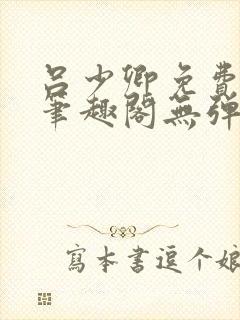 吕少卿免费
笔趣阁無弹
寫本書逗个娘